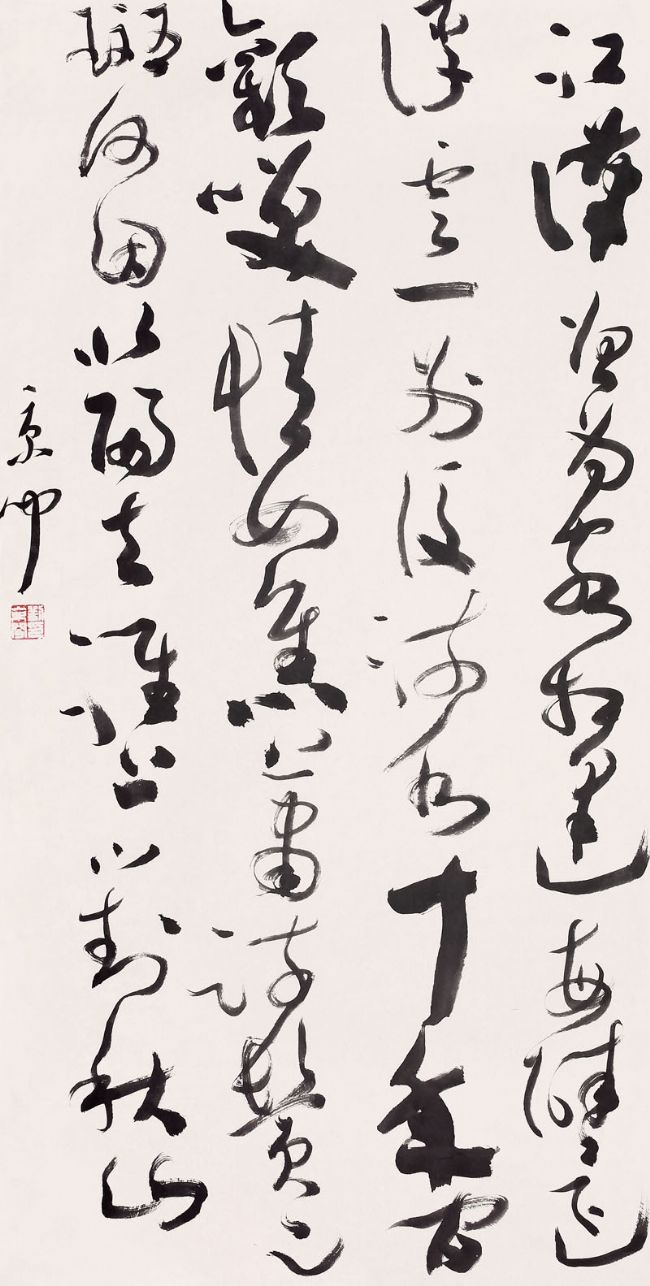 江漢曾為客相逢每醉還
浮雲一別後流水十年間
歡笑情如舊蕭疏鬢已
斑何因北歸去淮上對秋山